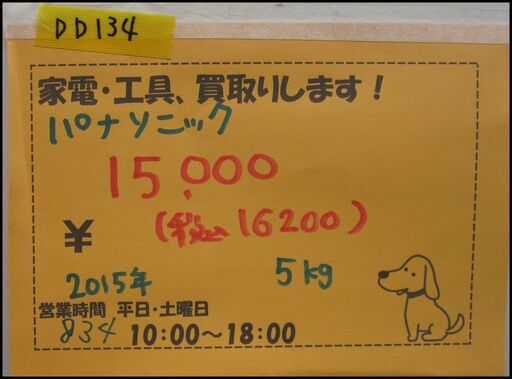 DD134
家電・工具、買取りします！
パナソニック
15,000
(税込16200)
¥
2015年 5kg
営業時間 平日・土曜日
834 10:00～18:00